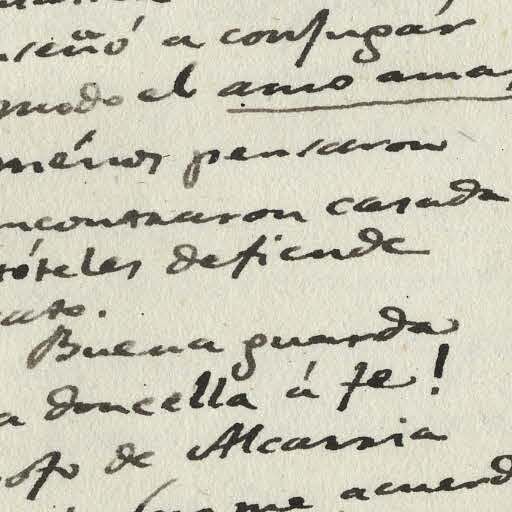 señó a conjugár
modo el amo amas
ménos pensaron
ncontraron casada
tóteles defiende
cato.
Buena guarda
a doncella á fe!
ofo de Alcarria
me acuerd